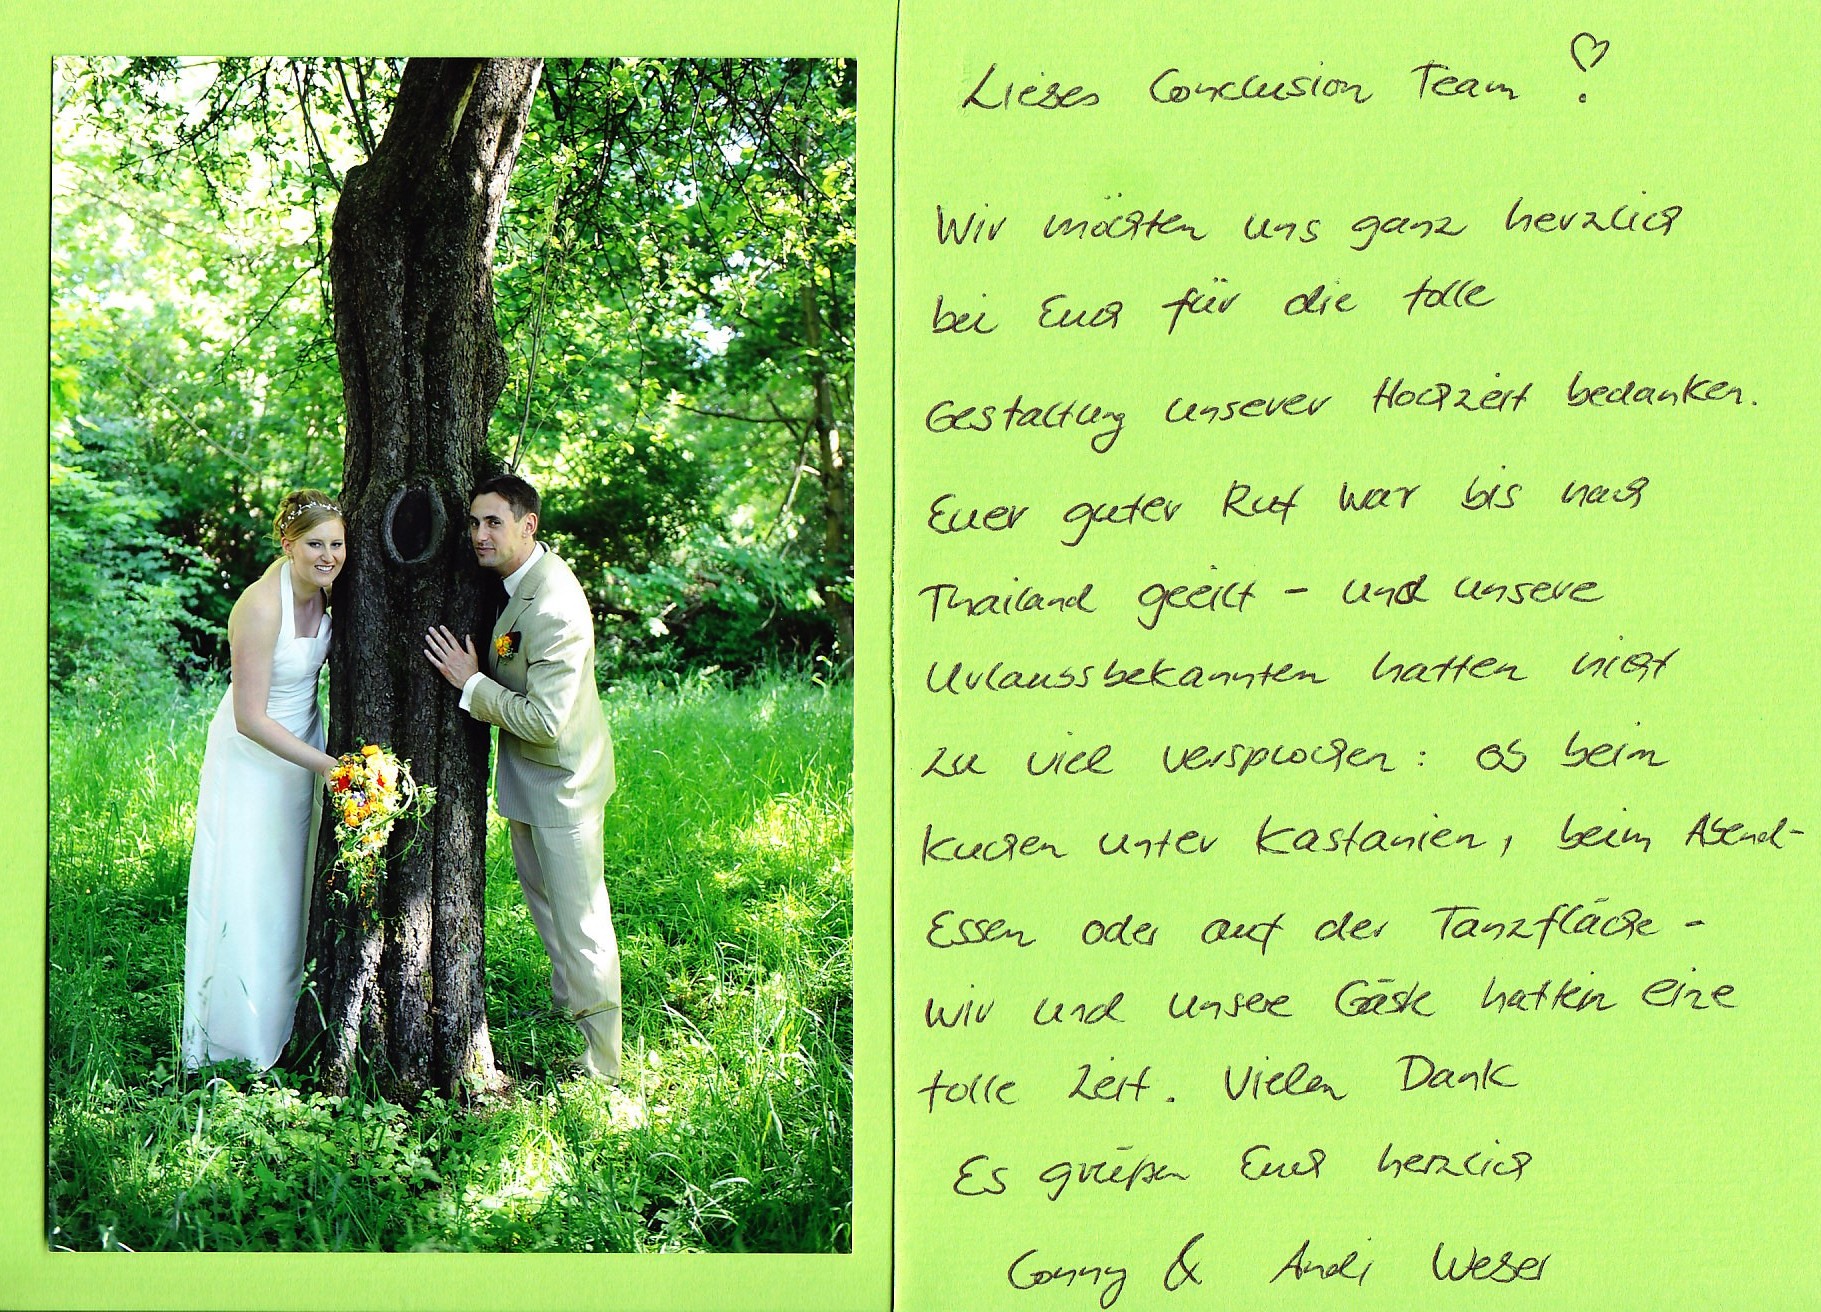 Liebes Conclusion Team!
Wir möchten uns ganz herzlich
bei Euch für die tolle
Gestaltung unserer Hochzeit bedanken.
Euer guter Ruf war bis nach
Thailand geeilt - und unsere
Urlaubsbekannten hatten nicht
zu viel versprochen: ob beim
Kuchen unter Kastanien, beim Abend-
Essen oder auf der Tanzfläche -
wir und unsere Gäste hatten eine
tolle Zeit. Vielen Dank
Es grüßen Euch herzlich
Conny & Andi Weber